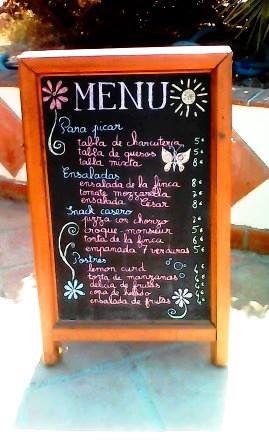 MENU
Para picar
tabla de charcuteria 5€
tabla de quesos 5€
talla mixta 8€
Ensaladas
ensalada de la finca 8€
tomate mozzarella
ensalada César 8€
Snack casero
pizza con chorizo
croque-monsieur 5€
torta de la finca 6€
empanada 7 verduras 5€
Postres
lemon curd
torta de manzanas
delicia de frutas
copa de helado
ensalada de frutas